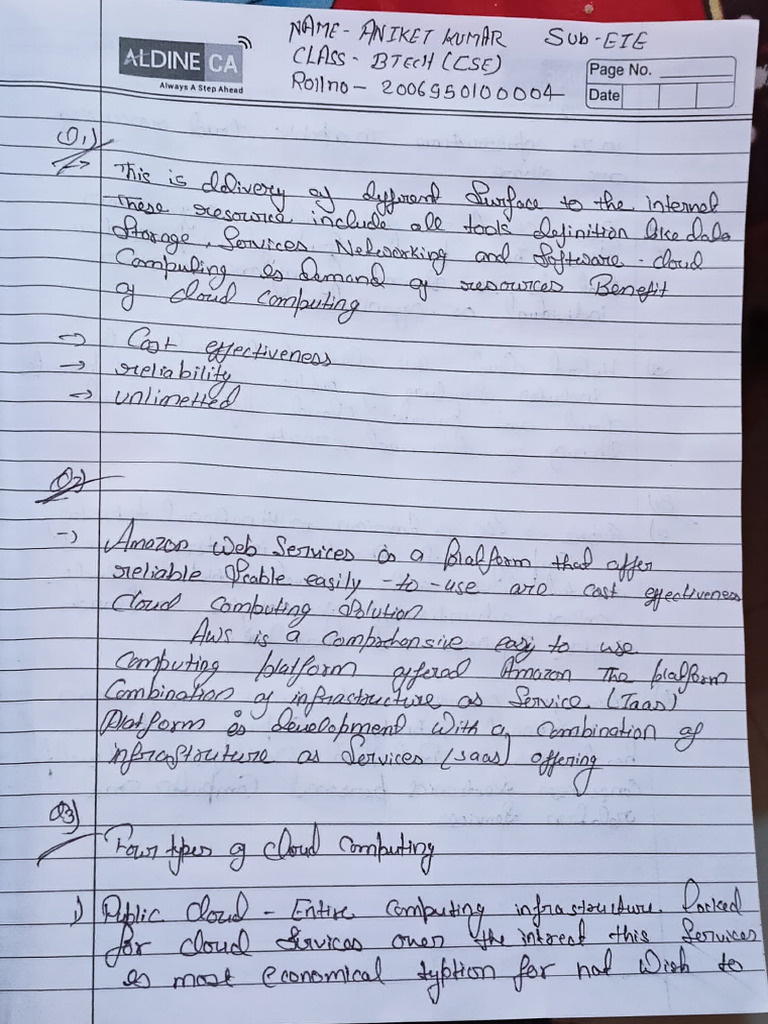 NAME- ANIKET KUMAR Sub-EIE
CLASS- BTECH (CSE)
Rollno- 2006950100004
ALDINE CA
Always A Step Ahead
Page No.
Date
Q1)
→ This is delivery of dyfferent Surface to the internal
These resource include all tools definition like data
Storage, Services Networking and Software - cloud
Computing is Demand of resources Benefit
of cloud computing
→ Cost effectiveness
→ reliability
→ unlimetted
Q2)
→ Amazon Web Services is a Platform that offer
reliable Scable easily -to -use are cost effectiveness
Cloud Computing Solution
AWS is a comprehensive easy to use
Computing platform offered Amazon The platform
Combination of infrastructure as Service (Iaas)
Platform is development with a combination of
infrastruture as Services (saas) offering
Q3)
Four types of cloud computing
1) Public cloud - Entire computing infrastructure
for cloud Services over the interest this Services
is most economical for not wish to